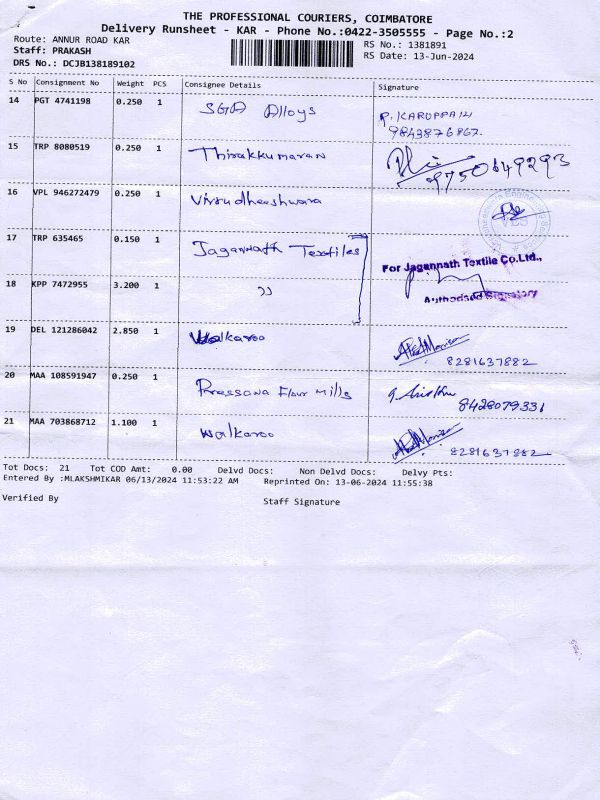 THE PROFESSIONAL COURIERS, COIMBATORE
Delivery Runsheet - KAR - Phone No.:0422-3505555 - Page No.:2
Route: ANNUR ROAD KAR
RS No.: 1381891
Staff: PRAKASH
RS Date: 13-Jun-2024
DRS No.: DCJB138189102
S No Consignment No Weight PCS Consignee Details Signature
14 PGT 4741198 0.250 1 SGA Alloys P. KARUPPAIH
9843876867.
15 TRP 8080519 0.250 1 Thirakkumaran 9750649293
16 VPL 946272479 0.250 1
17 TRP 635465 0.150 1 Jagannath Textiles
For Jagannath Textile Co.Ltd.,
18 KPP 7472955 3.200 1 "
Authorised Signatory
19 DEL 121286042 2.850 1 Walkaroo
8281637882
20 MAA 108591947 0.250 1 Flour Mills
8428079331
21 MAA 703868712 1.100 1 Walkaroo
8281637882
Tot Docs: 21 Tot COD Amt: 0.00 Delvd Docs: Non Delvd Docs: Delvy Pts:
Entered By :MLAKSHMIKAR 06/13/2024 11:53:22 AM Reprinted On: 13-06-2024 11:55:38
Verified By Staff Signature